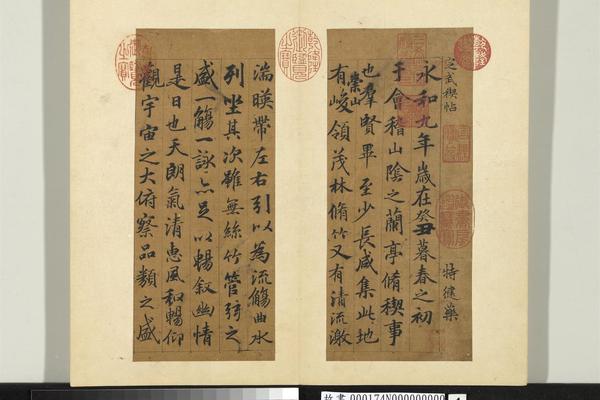 定武禊帖
特健藥
永和九年歲在癸丑暮春之初
于會稽山陰之蘭亭脩稧事
也羣賢畢至少長咸集此地
有崇山峻領茂林脩竹又有清流激
湍暎帶左右引以為流觴曲水
列坐其次雖無絲竹管弦之
盛一觴一詠亦足以暢叙幽情
是日也天朗氣清惠風和暢仰
觀宇宙之大俯察品類之盛
故書 000174N000000000